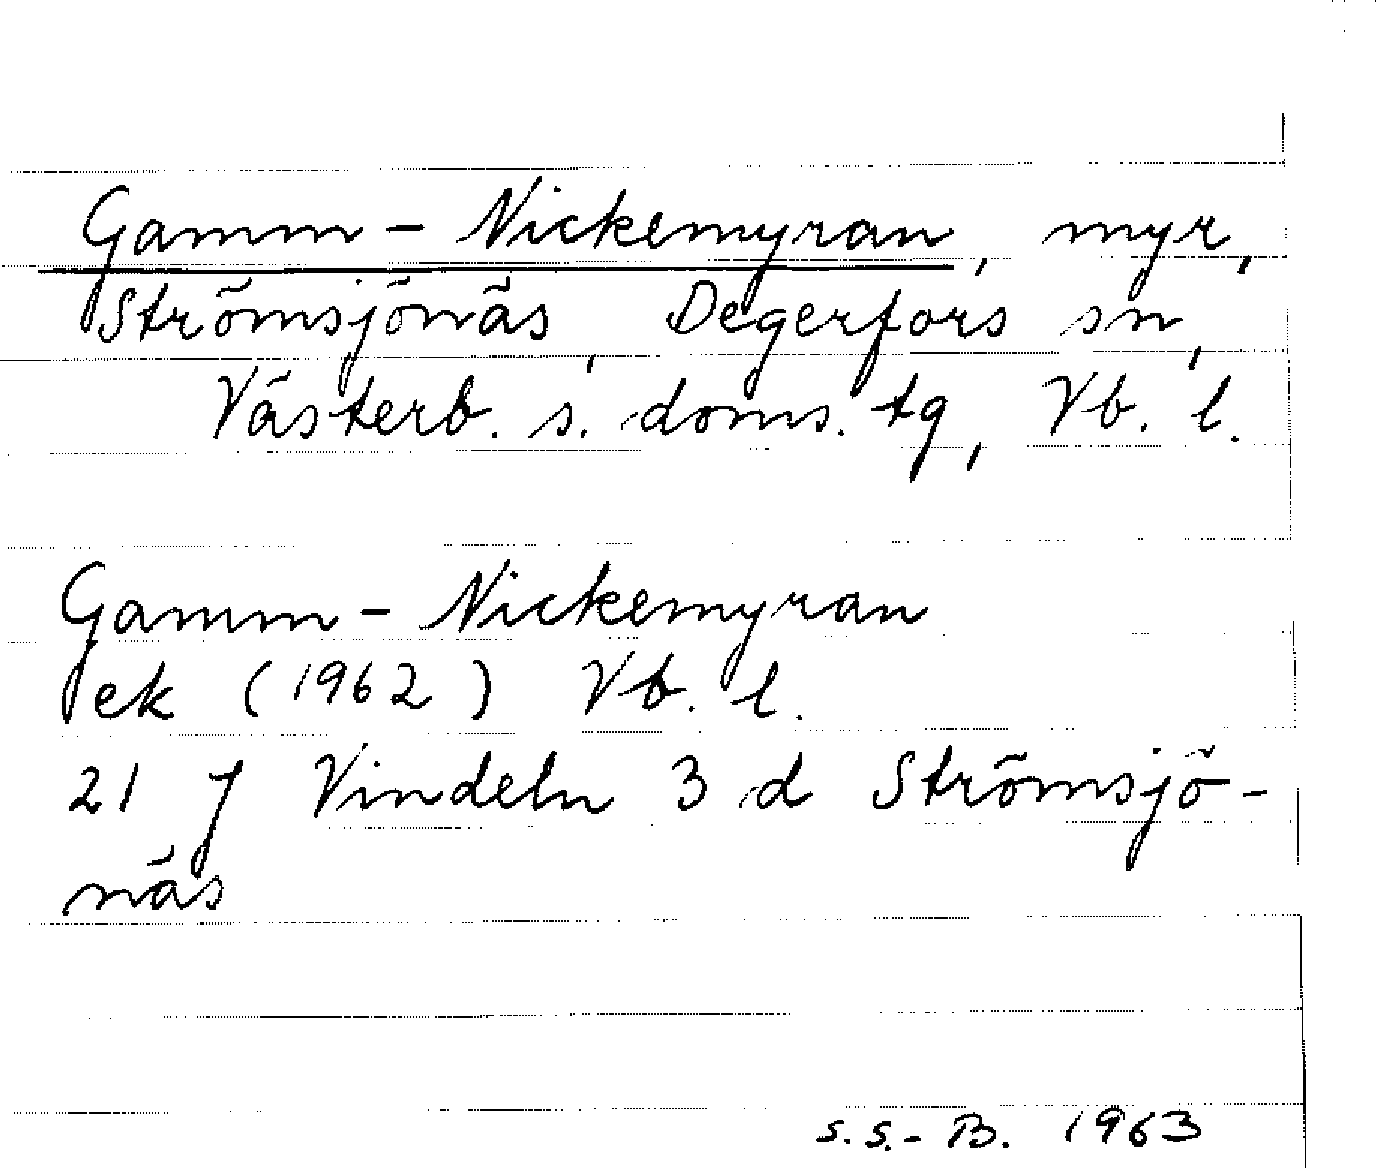 Gamm-Nickemyran, myr,
Strömsjönäs, Degerfors sn,
Västerb. s. doms. tg, Vb. l.
Gamm-Nickemyran
ek (1962) Vb. l.
21 J Vindeln 3 d Strömsjö-
näs
S.S.-B. 1963